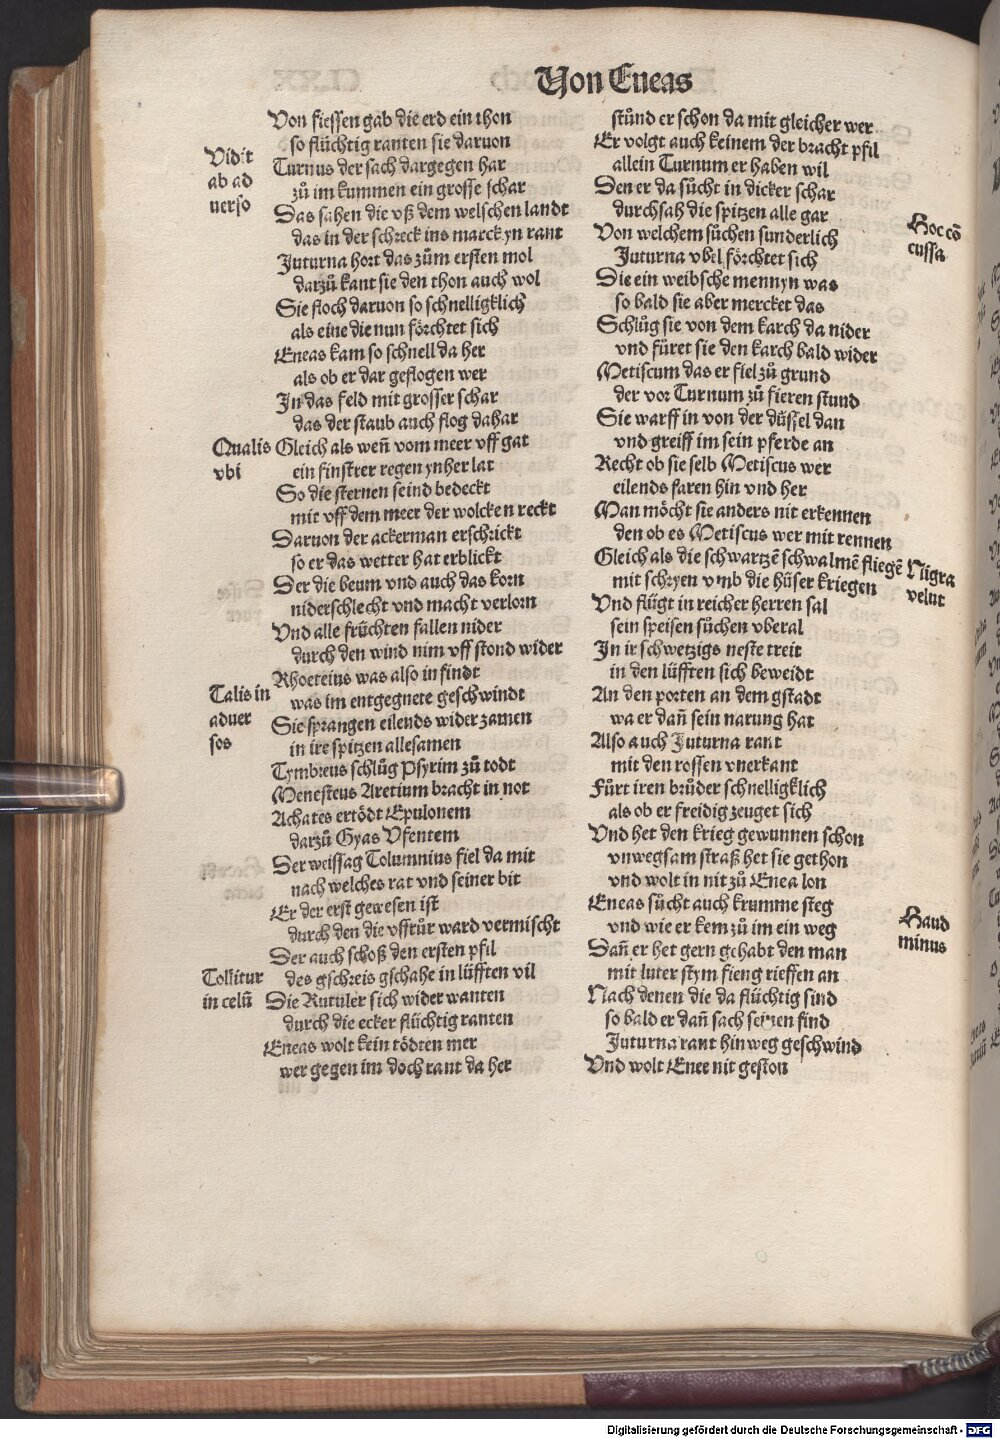 Von Eneas
Von fiessen gab die erd ein thon
so flüchtig ranten sie daruon
Vidit
ab ad
uerso
Turnus der sach dargegen har
zů im kummen ein grosse schar
Das sahen die vß dem welschen landt
das in der schreck ins marck yn rant
Juturna hort das zům ersten mol
darzů kant sie den thon auch wol
Sie floch daruon so schnelligklich
als eine die nun förchtet sich
Eneas kam so schnell da her
als ob er dar geflogen wer
In das feld mit grosser schar
das der staub auch flog dahar
Qualis
vbi
Gleich als weñ vom meer vff gat
ein finstrer regen ynher lat
So die sternen seind bedeckt
mit vff dem meer der wolcken reckt
Daruon der ackerman erschrickt
so er das wetter hat erblickt
Der die beum vnd auch das korn
niderschlecht vnd macht verlorn
Vnd alle früchten fallen nider
durch den wind nim vff stond wider
Rhoeteius was also in findt
Talis in
aduer
sos
was im entgegnete geschwindt
Sie sprangen eilends wider zamen
in ire spitzen allesamen
Tymbreus schlůg Psyrim zů todt
Menesteus Aretium bracht in not
Achates ertödt Epulonem
darzů Gyas Vfentem
Der weissag Tolumnius fiel da mit
nach welches rat vnd seiner bit
Er der erst gewesen ist
durch den die vffrůr ward vermischt
Der auch schoß den ersten pfil
Tollitur
in celũ
des gschreis gschahe in lüfften vil
Die Rutuler sich wider wanten
durch die ecker flüchtig ranten
Eneas wolt kein tödten mer
wer gegen im doch rant da her
stůnd er schon da mit gleicher wer
Er volgt auch keinem der bracht pfil
allein Turnum er haben wil
Den er da sůcht in dicker schar
durchsah die spitzen alle gar
Hoc cõ
cussa
Von welchem sůchen sunderlich
Juturna vbel förchtet sich
Die ein weibsche mennyn was
so bald sie aber mercket das
Schlůg sie von dem karch da nider
vnd fůret sie den karch bald wider
Metiscum das er fiel zů grund
der vor Turnum zů fieren stund
Sie warff in von der düssel dan
vnd greiff im sein pferde an
Recht ob sie selb Metiscus wer
eilends faren hin vnd her
Man möcht sie anders nit erkennen
den ob es Metiscus wer mit rennen
Nigra
velut
Gleich als die schwartzẽ schwalmẽ fliegẽ
mit schryen vmb die hüser kriegen
Vnd flügt in reicher herren sal
sein speisen sůchen vberal
In ir schwetzigs neste treit
in den lüfften sich beweidt
An den porten an dem gstadt
wa er dañ sein narung hat
Also auch Juturna rant
mit den rossen vnerkant
Fůrt iren brůder schnelligklich
als ob er freidig zeuget sich
Vnd het den krieg gewunnen schon
vnwegsam straß het sie gethon
vnd wolt in nit zů Enea lon
Haud
minus
Eneas sůcht auch krumme steg
vnd wie er kem zů im ein weg
Dañ er het gern gehabt den man
mit luter stym fieng rieffen an
Nach denen die da flüchtig sind
so bald er dañ sach seinen find
Juturna rant hinweg geschwind
Vnd wolt Enee nit geston
Digitalisierung gefördert durch die Deutsche Forschungsgemeinschaft - DFG